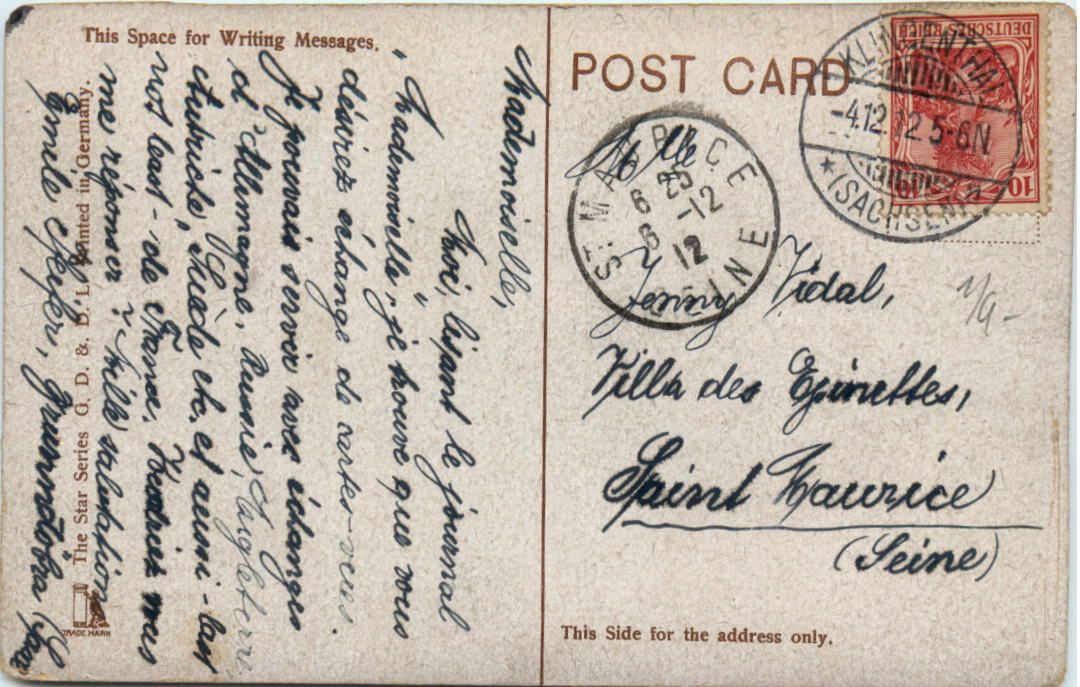 This Space for Writing Messages.
Mademoiselle,
Moi, lisant le journal
"Mademoiselle", je trouve que vous
désirez échange de cartes-vues.
Je pouvais servir avec échanges
d'Allemagne, Russie, Angleterre
Autriche, Suède etc. et aussi - last
not least - de France. Voudriez vous
me réponser? Mille salutations
Emile Grunndöbra (Sax
The Star Series G. D. & D. L. Printed in Germany.
TRADE MARK
POST CARD
DEUTSCHES REICH
10 10
KLINGENTHAL
-4.12.12 5-6N
* (SACHSEN)
ST MAURICE
6 25
6 -12
12
SEINE
Mlle
Jenny Vidal,
1/9-
Villa des Epinettes,
Saint Maurice
(Seine)
This Side for the address only.